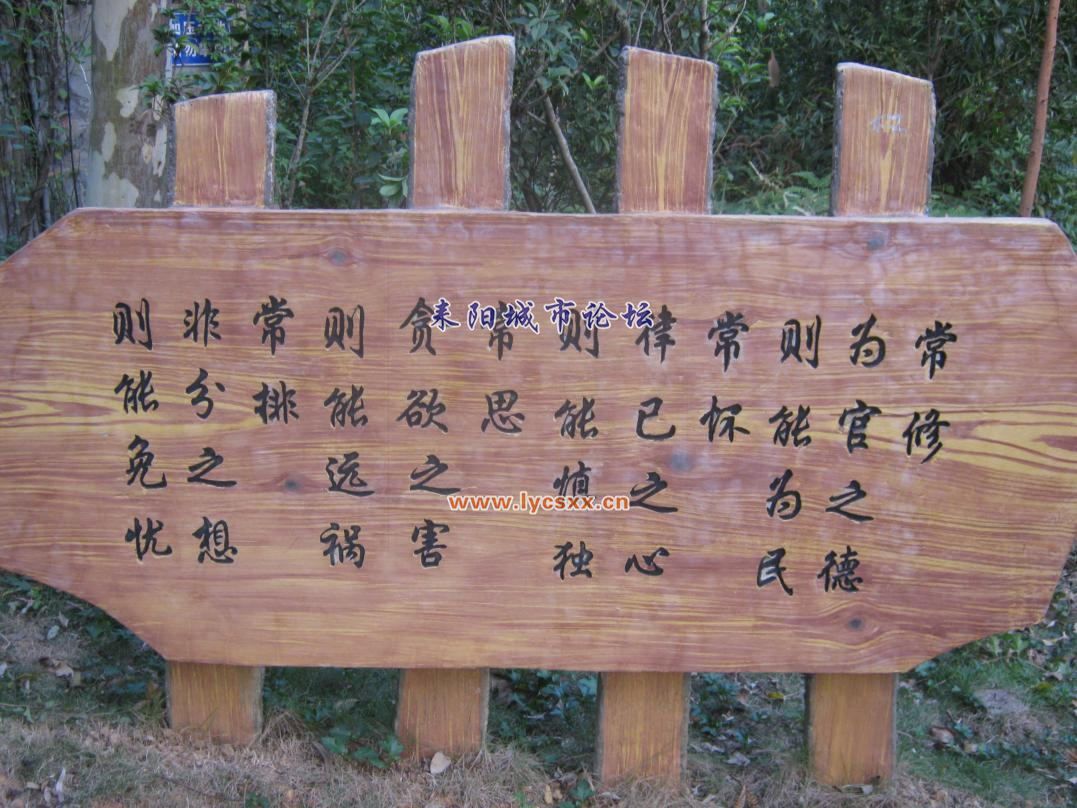 常修
为官之德
则能为民
常怀
律己之心
则能慎独
常思
贪欲之害
则能远祸
常排
非分之想
则能免忧
耒阳城市论坛
www.lycsxx.cn